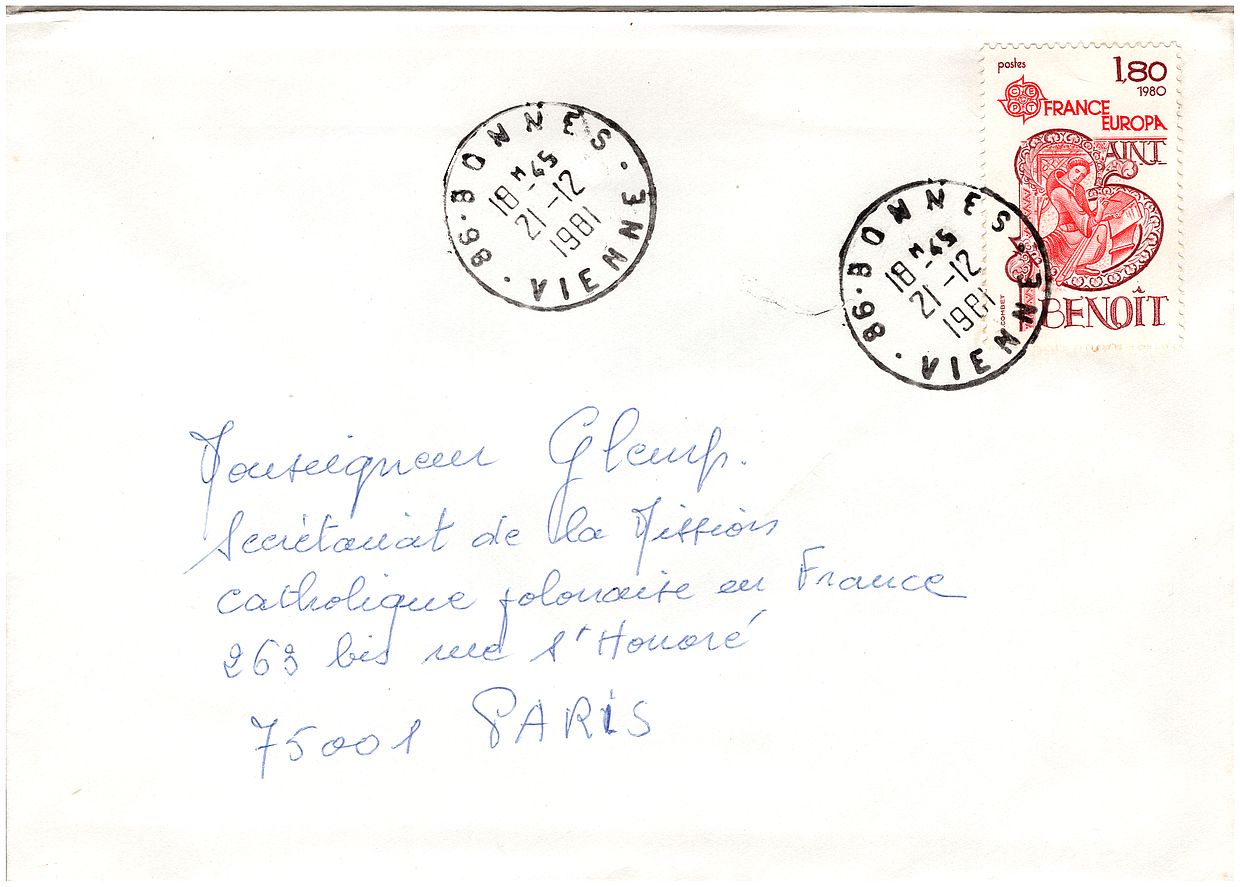 postes
1,80
1980
CEPT
FRANCE
EUROPA
SAINT
BENOÎT
COMBET
86·BONNES·
18H-45
21-12
1981
·VIENNE
86·BONNES·
18H-45
21-12
1981
·VIENNE
Monseigneur Glemp.
Secrétariat de la Mission
catholique polonaise en France
263 bis rue St Honoré
75001 PARIS